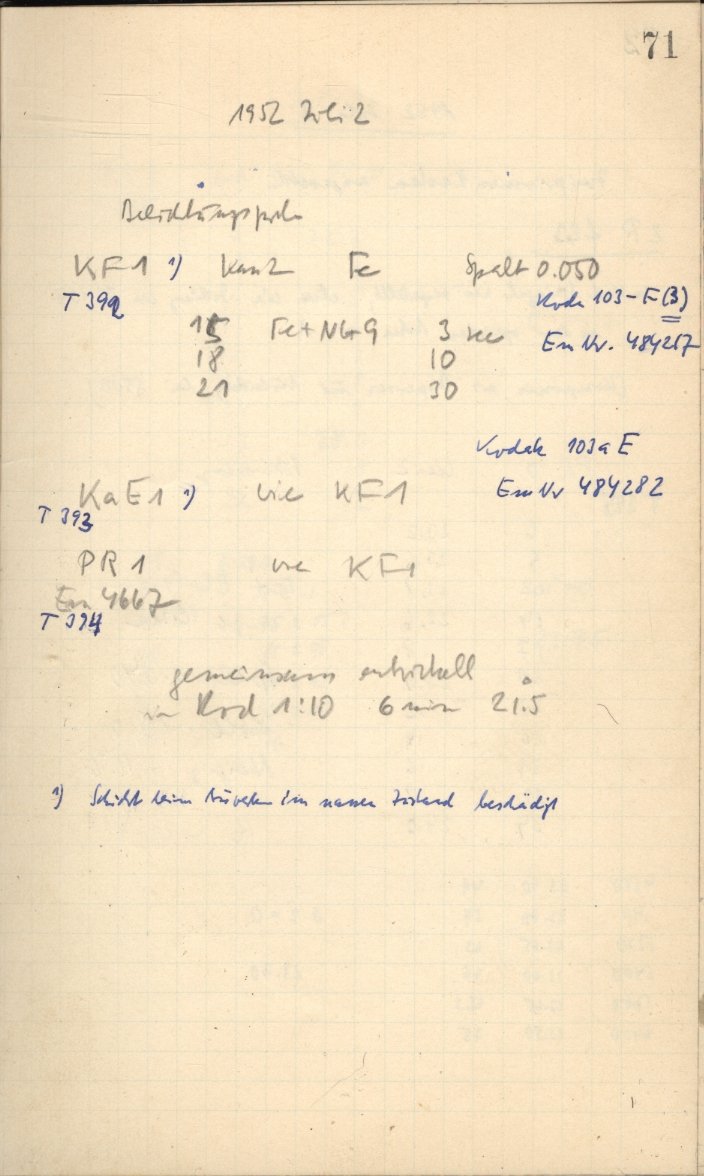 71
1952 Juli 2
Belichtungsprobe
KF1 1) Kan2 Fe Spalt 0.050
T 392 Kodak 103-F(3)
15 Fe+Nb+G 3 sec Em Nr. 484217
18 10
21 30
Kodak 103a E
KaE1 1) wie KF1 Em Nr 484282
T 393
PR 1 wie KF1
Em 4667
T 394
gemeinsam entwickelt
in Rod 1:10 6 min 21.5°
1) Schicht beim im nassen Zustand beschädigt